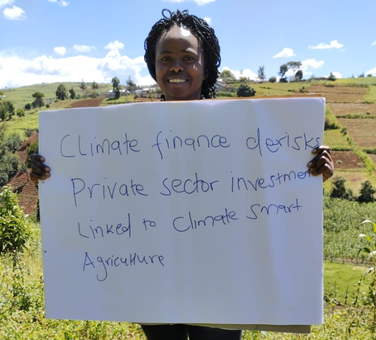 Climate finance derisks
Private sector investment
Linked to Climate smart
Agriculture